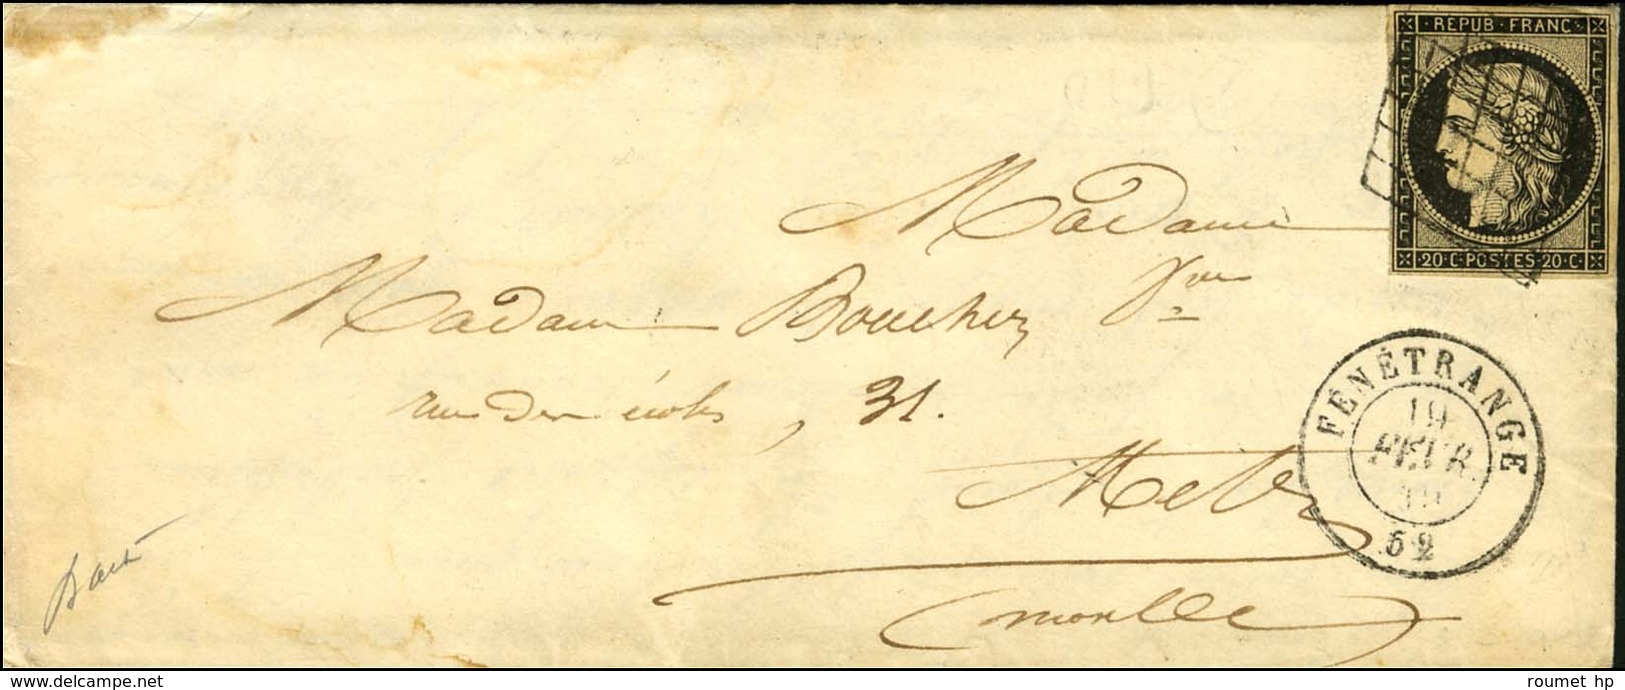 REPUB · FRANC
20 · C · POSTES · 20 · C
Madame
Madame Boucher Vve
rue des écoles, 31.
Metz
(Moselle
FÉNÉTRANGE
19
FEVR.
52
www.delcampe.net
roumet hp